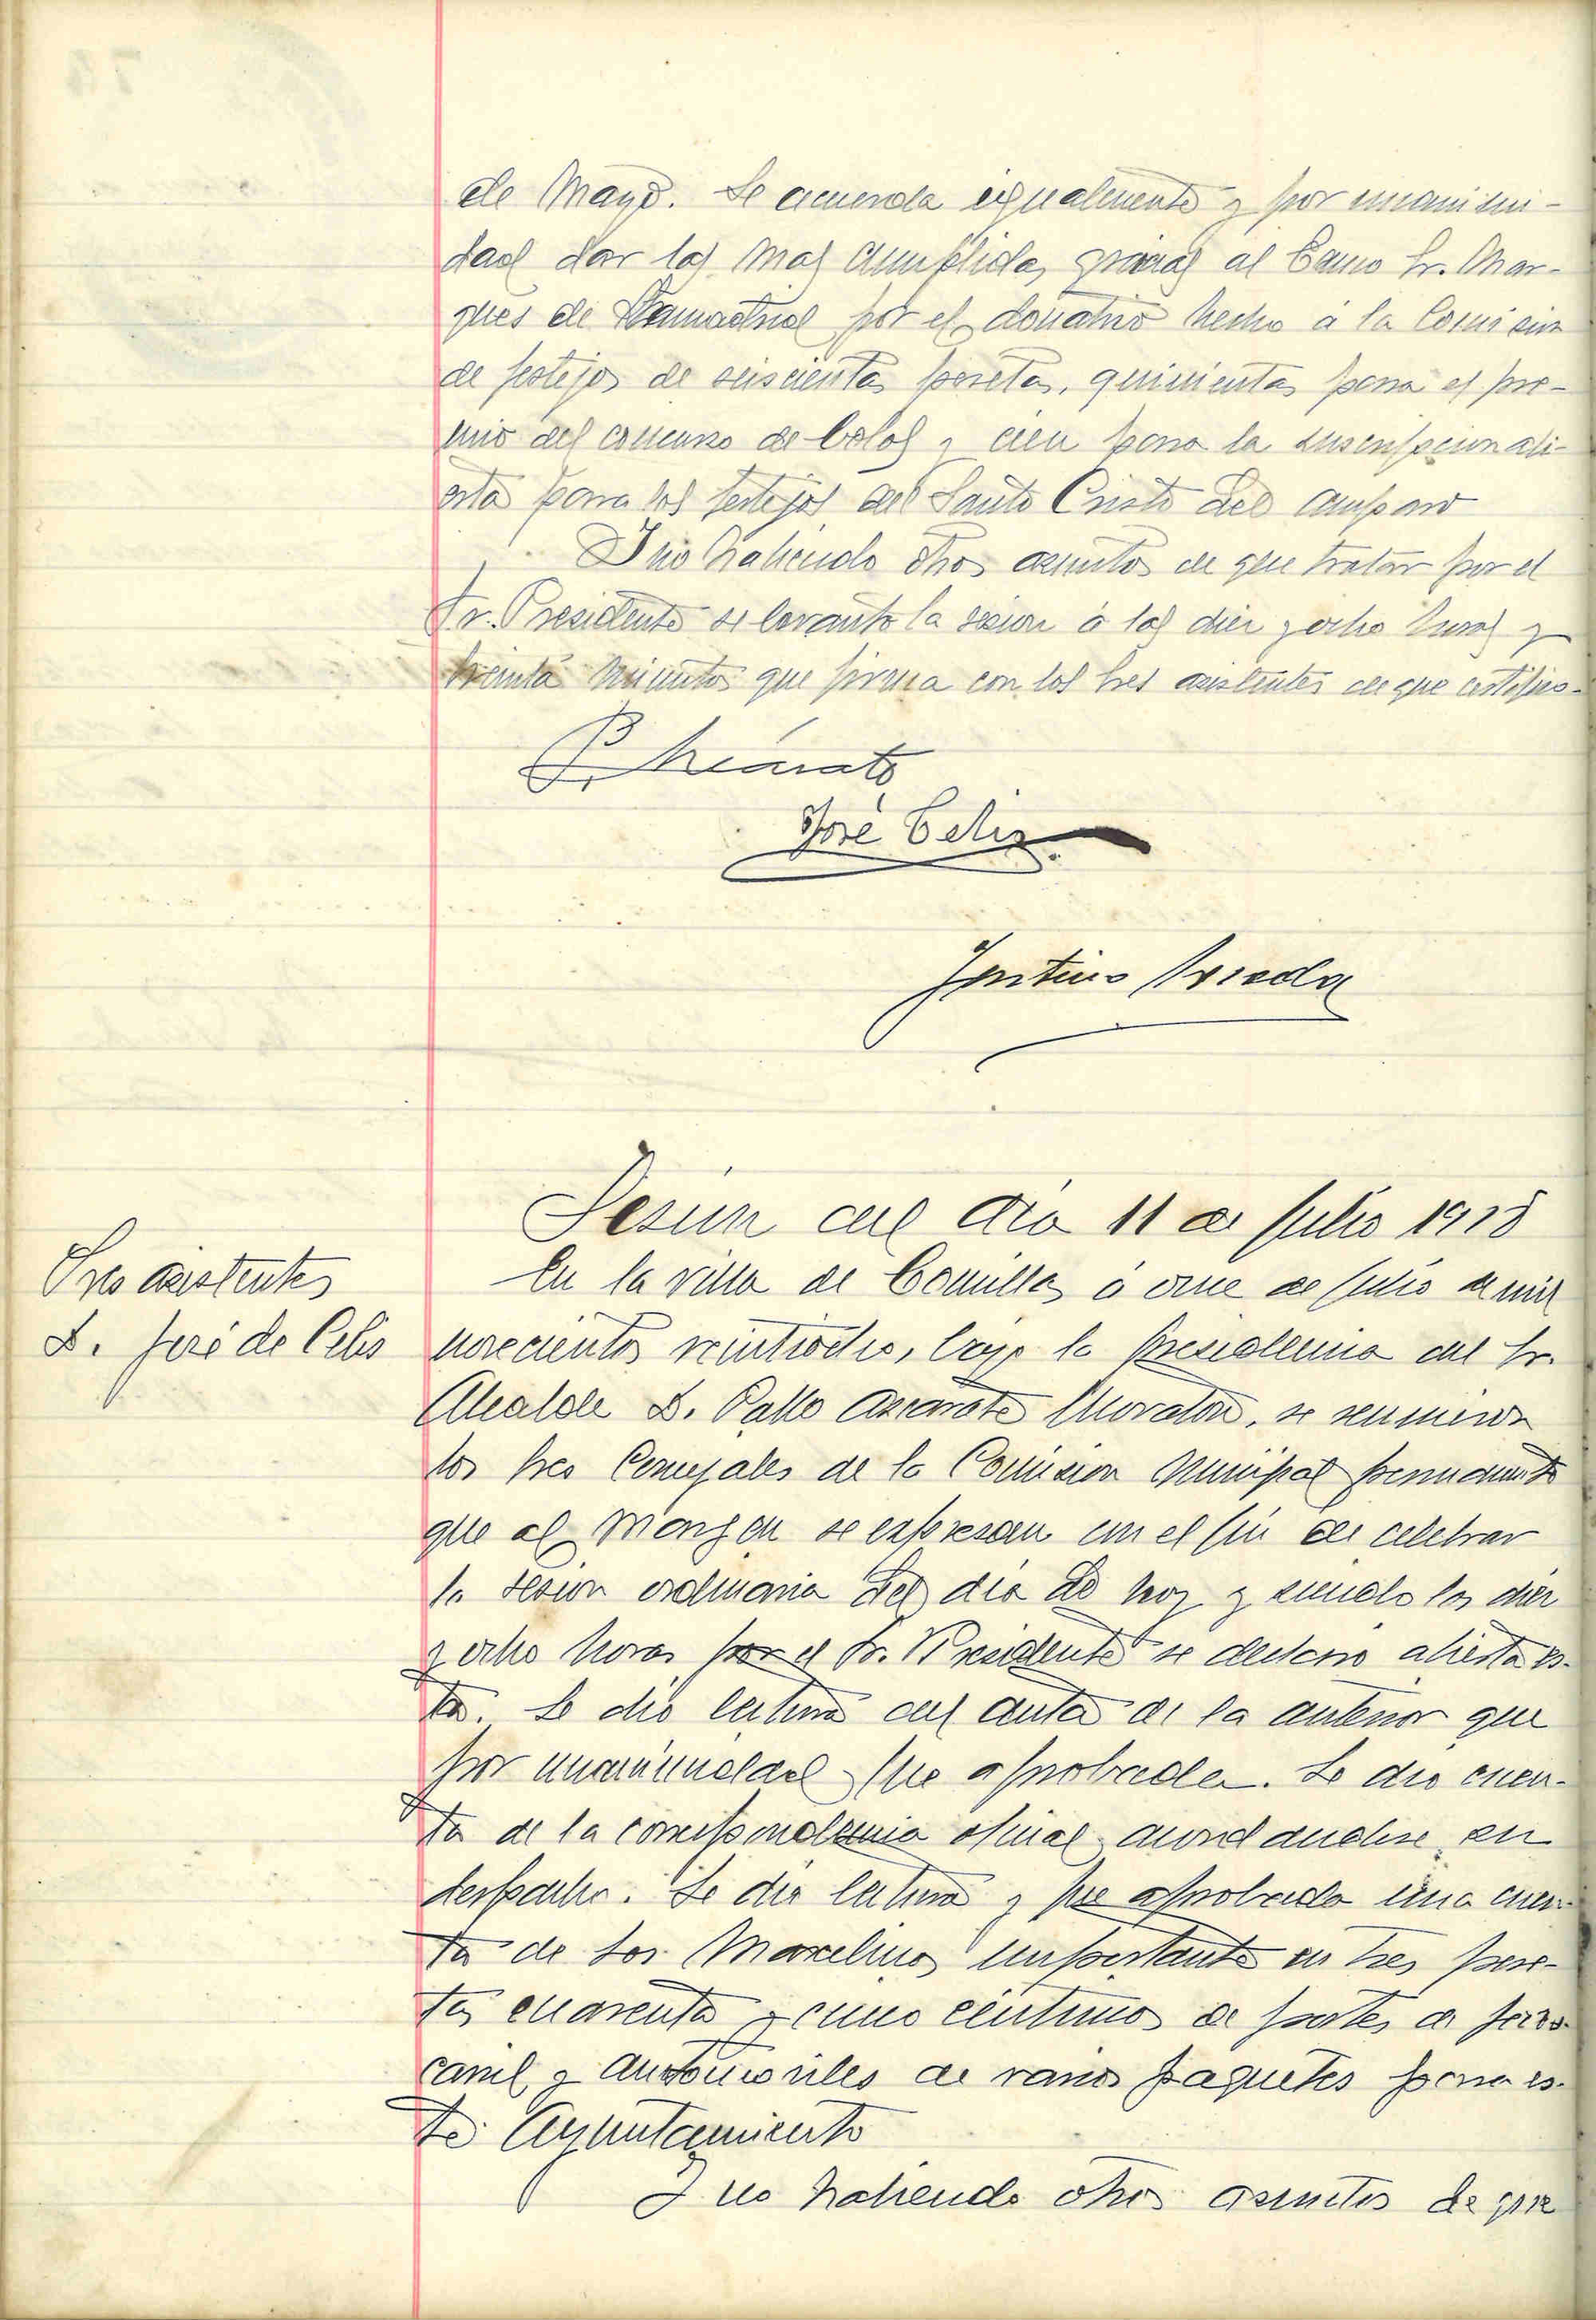 de Mayo. Se acuerda igualmente y por unanimi-
dad dar las mas cumplidas gracias al Excmo Sr. Mar-
qués de por el donativo hecho á la Comisión
de festejos de seiscientas pesetas, quinientas para el pre-
mio del concurso de bolos y cien para la suscripcion abi-
erta para los festejos del Santo Cristo del Amparo
Y no habiendo otros asuntos de que tratar por el
Sr. Presidente se levantó la sesion á las diez y ocho horas y
treinta minutos que firma con los Sres asistentes de que certifico.
José Celis
Sesión del dia 11 de Julio 1928
Sres asistentes
D. José de Celis
En la villa de Comillas á once de Julio de mil
novecientos veintiocho, bajo la Presidencia del Sr.
Alcalde D. Pablo Azcarate Moraton, se reunieron
los Sres Concejales de la Comision Municipal permanente
que al margen se expresan con el fin de celebrar
la sesion ordinaria del dia de hoy y siendo las diez
y ocho horas por el Sr. Presidente se declaró abierta es-
ta. Se dió lectura del acta de la anterior que
por unanimidad fue aprobada. Se dió cuen-
ta de la correspondencia oficial acordandose su
despacho. Se dió lectura y fue aprobada una cuen-
ta de Marcelino importante en tres pese-
tas cuarenta y cinco centimos de portes de ferro-
carril y automoviles de varios paquetes para es-
te Ayuntamiento
Y no habiendo otros asuntos de que